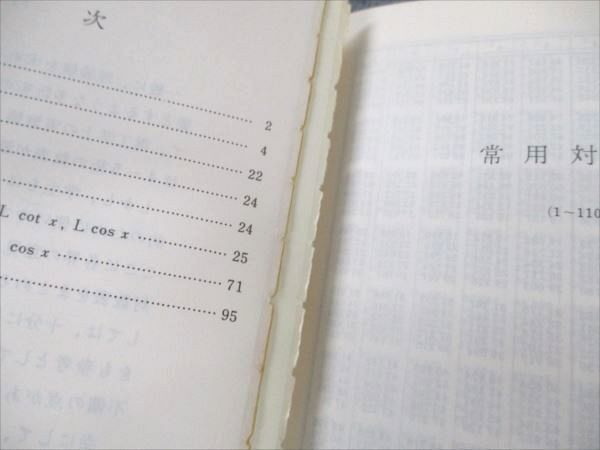 次
2
4
22
24
24
L cot x, L cos x 25
cos x 71
95
常用対
(1~110